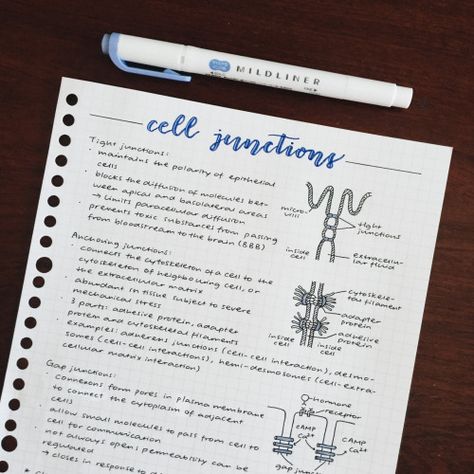 MILDLINER
cell junctions
Tight junctions:
· maintains the polarity of epithelial
cells
· blocks the diffusion of molecules bet-
ween apical and basolateral areas
→ limits paracellular diffusion
· prevents toxic substances from passing
from bloodstream to the brain (BBB)
micro-
villi
tight
junctions
inside
cell
extracellu-
lar fluid
Anchoring junctions:
· connects the cytoskeleton of a cell to the
cytoskeleton of neighbouring cell, or
the extracellular matrix
· abundant in tissue subject to severe
mechanical stress
· 3 parts: adhesive protein, adapter
protein and cytoskeletal filaments
· examples: adherens junctions (cell-cell interaction), desmo-
somes (cell-cell interaction), hemi-desmosomes (cell-extra-
cellular matrix interaction)
cytoskele-
tal filament
adapter
protein
adhesive
protein
inside
cell
inside
cell
Gap junctions:
· connexons form pores in plasma membrane
to connect the cytoplasm of adjacent
cells
· allow small molecules to pass from cell to
cell for communication
· not always open! permeability can be
regulated
→ closes in response to
hormone
receptor
cAMP
Ca²⁺
cAMP
Ca²⁺
gap